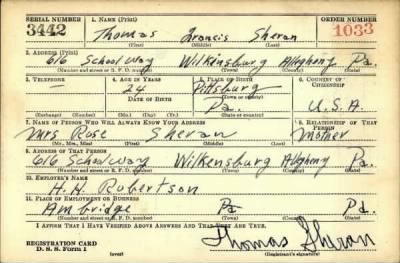 SERIAL NUMBER 1. NAME (Print) ORDER NUMBER
3442 Thomas Francis Sheran 1033
(First) (Middle) (Last)
2. ADDRESS (Print)
616 School way Wilkinsburg Allegheny Pa.
(Number and street or R. F. D. number) (Town) (County) (State)
3. TELEPHONE 4. AGE IN YEARS 5. PLACE OF BIRTH 6. COUNTRY OF CITIZENSHIP
— 24 Pittsburg
DATE OF BIRTH (Town or county)
Pa. U.S.A.
(Exchange) (Number) (Mo.) (Day) (Yr.) (State or country)
7. NAME OF PERSON WHO WILL ALWAYS KNOW YOUR ADDRESS 8. RELATIONSHIP OF THAT PERSON
Mrs Rose Sheran Mother
(Mr., Mrs., Miss) (First) (Middle) (Last)
9. ADDRESS OF THAT PERSON
616 School way Wilkensburg Allegheny Pa.
(Number and street or R. F. D. number) (Town) (County) (State)
10. EMPLOYER'S NAME
H. H. Robertson
11. PLACE OF EMPLOYMENT OR BUSINESS
Ambridge Pa Pa.
(Number and street or R. F. D. number) (Town) (County) (State)
I AFFIRM THAT I HAVE VERIFIED ABOVE ANSWERS AND THAT THEY ARE TRUE.
REGISTRATION CARD Thomas Sheran
D. S. S. Form 1 (over) (Registrant's signature)